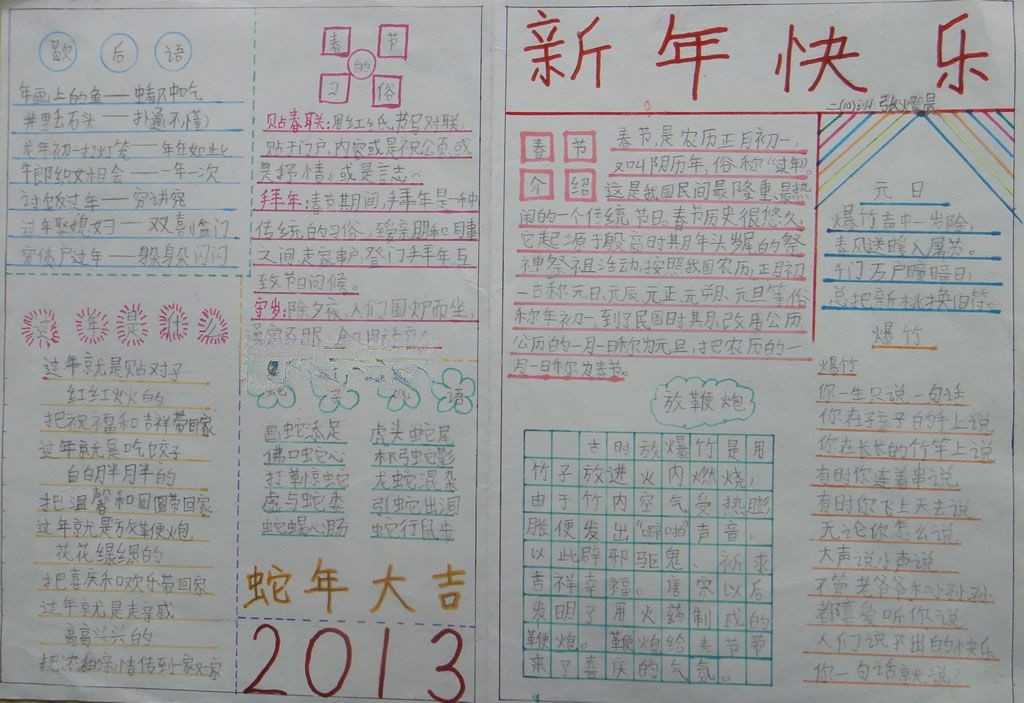 歇后语
年画上的鱼——中吃
井里丢石头——扑通(不懂)
年初一打灯笼——年年如此
牛郎织女相会——一年一次
讨饭过年——穷讲究
过年娶媳妇——双喜临门
穷债户过年——躲躲闪闪
春节的习俗
贴春联:用红纸书写对联,
贴于门户,内容或是祝公贡,或
是抒情。或是言志。
拜年:春节期间,拜年是一种
传统的习俗,至亲朋和同事
之间走家串户,登门拜年互
致节日问候。
守岁:除夕夜,人们围炉而坐,
年是什么
过年就是贴对子
红红火火的
把祝福和吉祥带回家
过年就是吃饺子
白白胖胖的
把温馨和团圆带回家
过年就是放鞭炮
花花绿绿的
把喜庆和欢乐带回家
过年就是走亲戚
高高兴兴的
把浓浓亲情传到家家
语
画蛇添足 虎头蛇尾
佛口蛇心 杯弓蛇影
打草惊蛇 龙蛇混杂
虚与蛇委 引蛇出洞
蛇蝎心肠 蛇行鼠步
蛇年大吉
2013
新年快乐
春节介绍
春节,是农历正月初一,
又叫阴历年,俗称“过年”。
这是我国民间最隆重、最热
闹的一个传统节日。春节历史很悠久,
它起源于殷商时期年头岁尾的祭
神祭祖活动,按照我国农历,正月初
一古称元日、元辰、元正、元朔、元旦等,俗
称年初一,到了民国时期,改用公历,
公历的一月一日称为元旦,把农历的一
月一日称为春节。
元日
爆竹声中一岁除,
春风送暖入屠苏。
千门万户瞳瞳日,
总把新桃换旧符。
放鞭炮
古时放爆竹是用
竹子放进火内燃烧,
由于竹内空气受热膨
胀便发出“噼啪”声音,
以此辟邪驱鬼、祈求
吉祥幸福。唐宋以后
发明了用火药制成的
鞭炮。鞭炮给春节带
来了喜庆的气氛。
爆竹
爆竹
你一生只说一句话
你在孩子的手上说
你在长长的竹竿上说
有时你连着串说
有时你飞上天去说
无论你怎么说
大声说小声说
不管老爷爷和小孙孙
都喜爱听你说
人们说不出的快乐
你一句话就说了